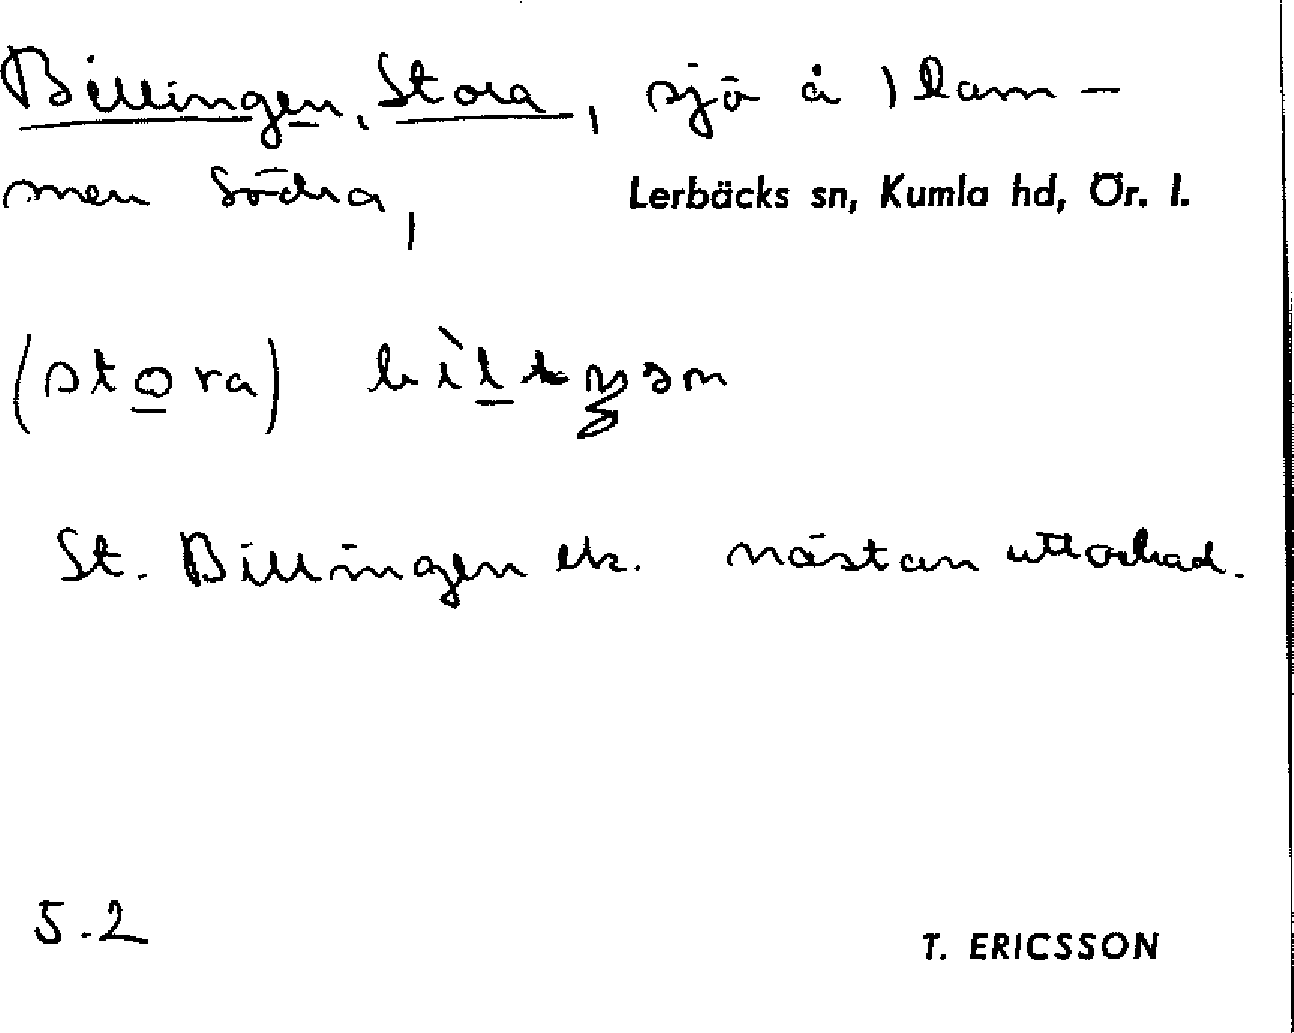 Billingen, Stora, sjö å 1 Dam-
men Södra, Lerbäcks sn, Kumla hd, Ör. l.
(stora)
St. Billingen ek. nästan uttorkad.
5.2 T. ERICSSON